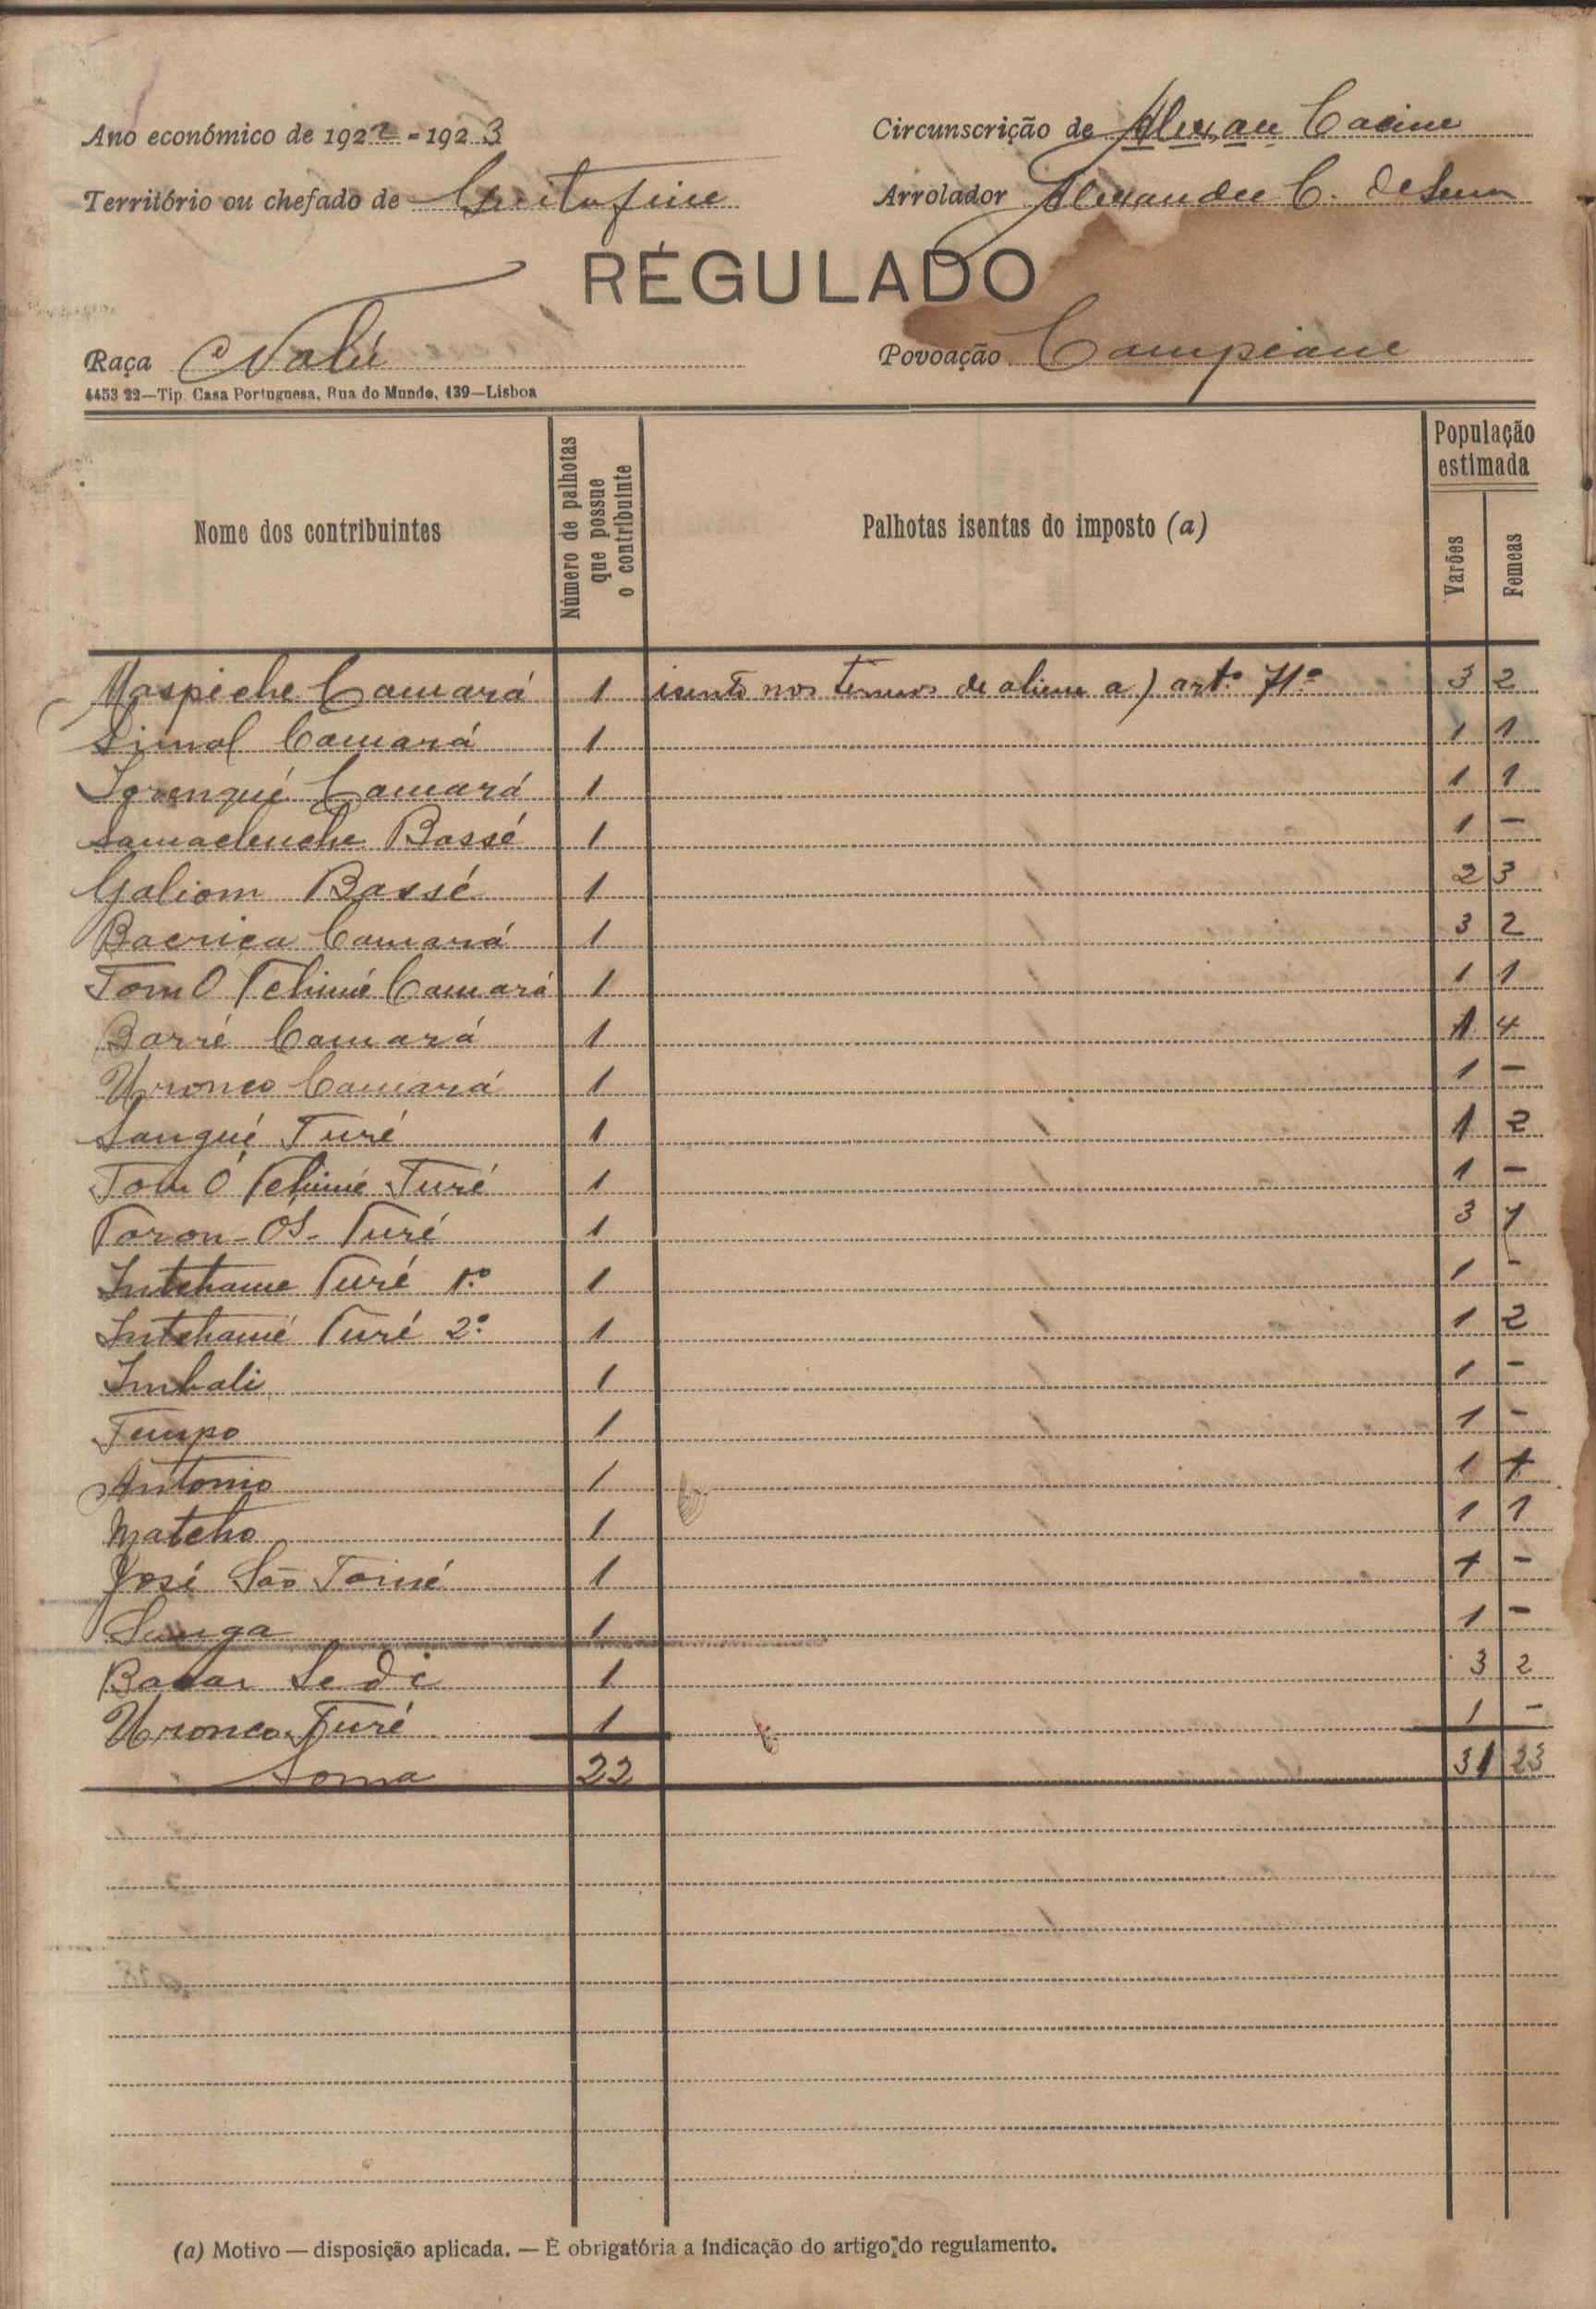 Ano económico de 1922-1923
Circunscrição de Cacine
Território ou chefado de Quitafine
Arrolador Alexandre C. de Sena
RÉGULADO
Raça Nalú
Povoação Campeane
4453 22—Tip. Casa Portuguesa, Rua do Mundo, 139—Lisboa
Nome dos contribuintes
Número de palhotas que possue o contribuinte
Palhotas isentas do imposto (a)
População estimada
Varões
Femeas
Maspiche Camará 1 isento nos termos de aliena a) artº 71º 3 2
Simal Camará 1 1 1
Camará 1 1 1
Bassé 1 1 —
Galiom Bassé 1 2 3
Bacrica Camará 1 3 2
Tom O Tchimé Camará 1 1 1
Barré Camará 1 1 4
Uronco Camará 1 1 —
Sangué Turé 1 1 2
Tom O Tchimé Turé 1 1 —
Toron-Os-Turé 1 3 1
Intchame Turé 1º 1 1 —
Intchamé Turé 2º 1 1 2
Imbali 1 1 —
Tempo 1 1 —
Antonio 1 1 1
Matcho 1 1 1
José São Tomé 1 1 —
Sanga 1 1 —
Bakar Sedi 1 3 2
Uronco Turé 1 1 —
Soma 22 31 23
(a) Motivo — disposição aplicada. — É obrigatória a indicação do artigo do regulamento.